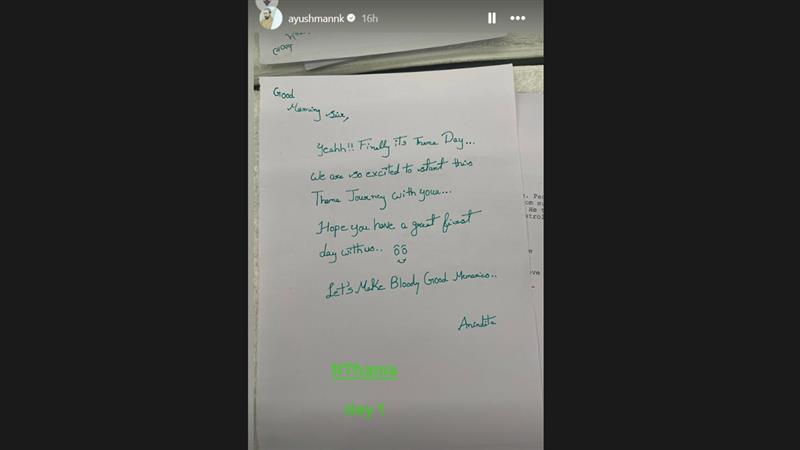 ayushmannk 16h
Good
Morning Sir,
Yeahh!! Finally its Thama Day...
We are so excited to start this
Thama Journey with you...
Hope you have a great first
day with us..
Let's Make Bloody Good Memories..
Anindita
#Thama
day 1